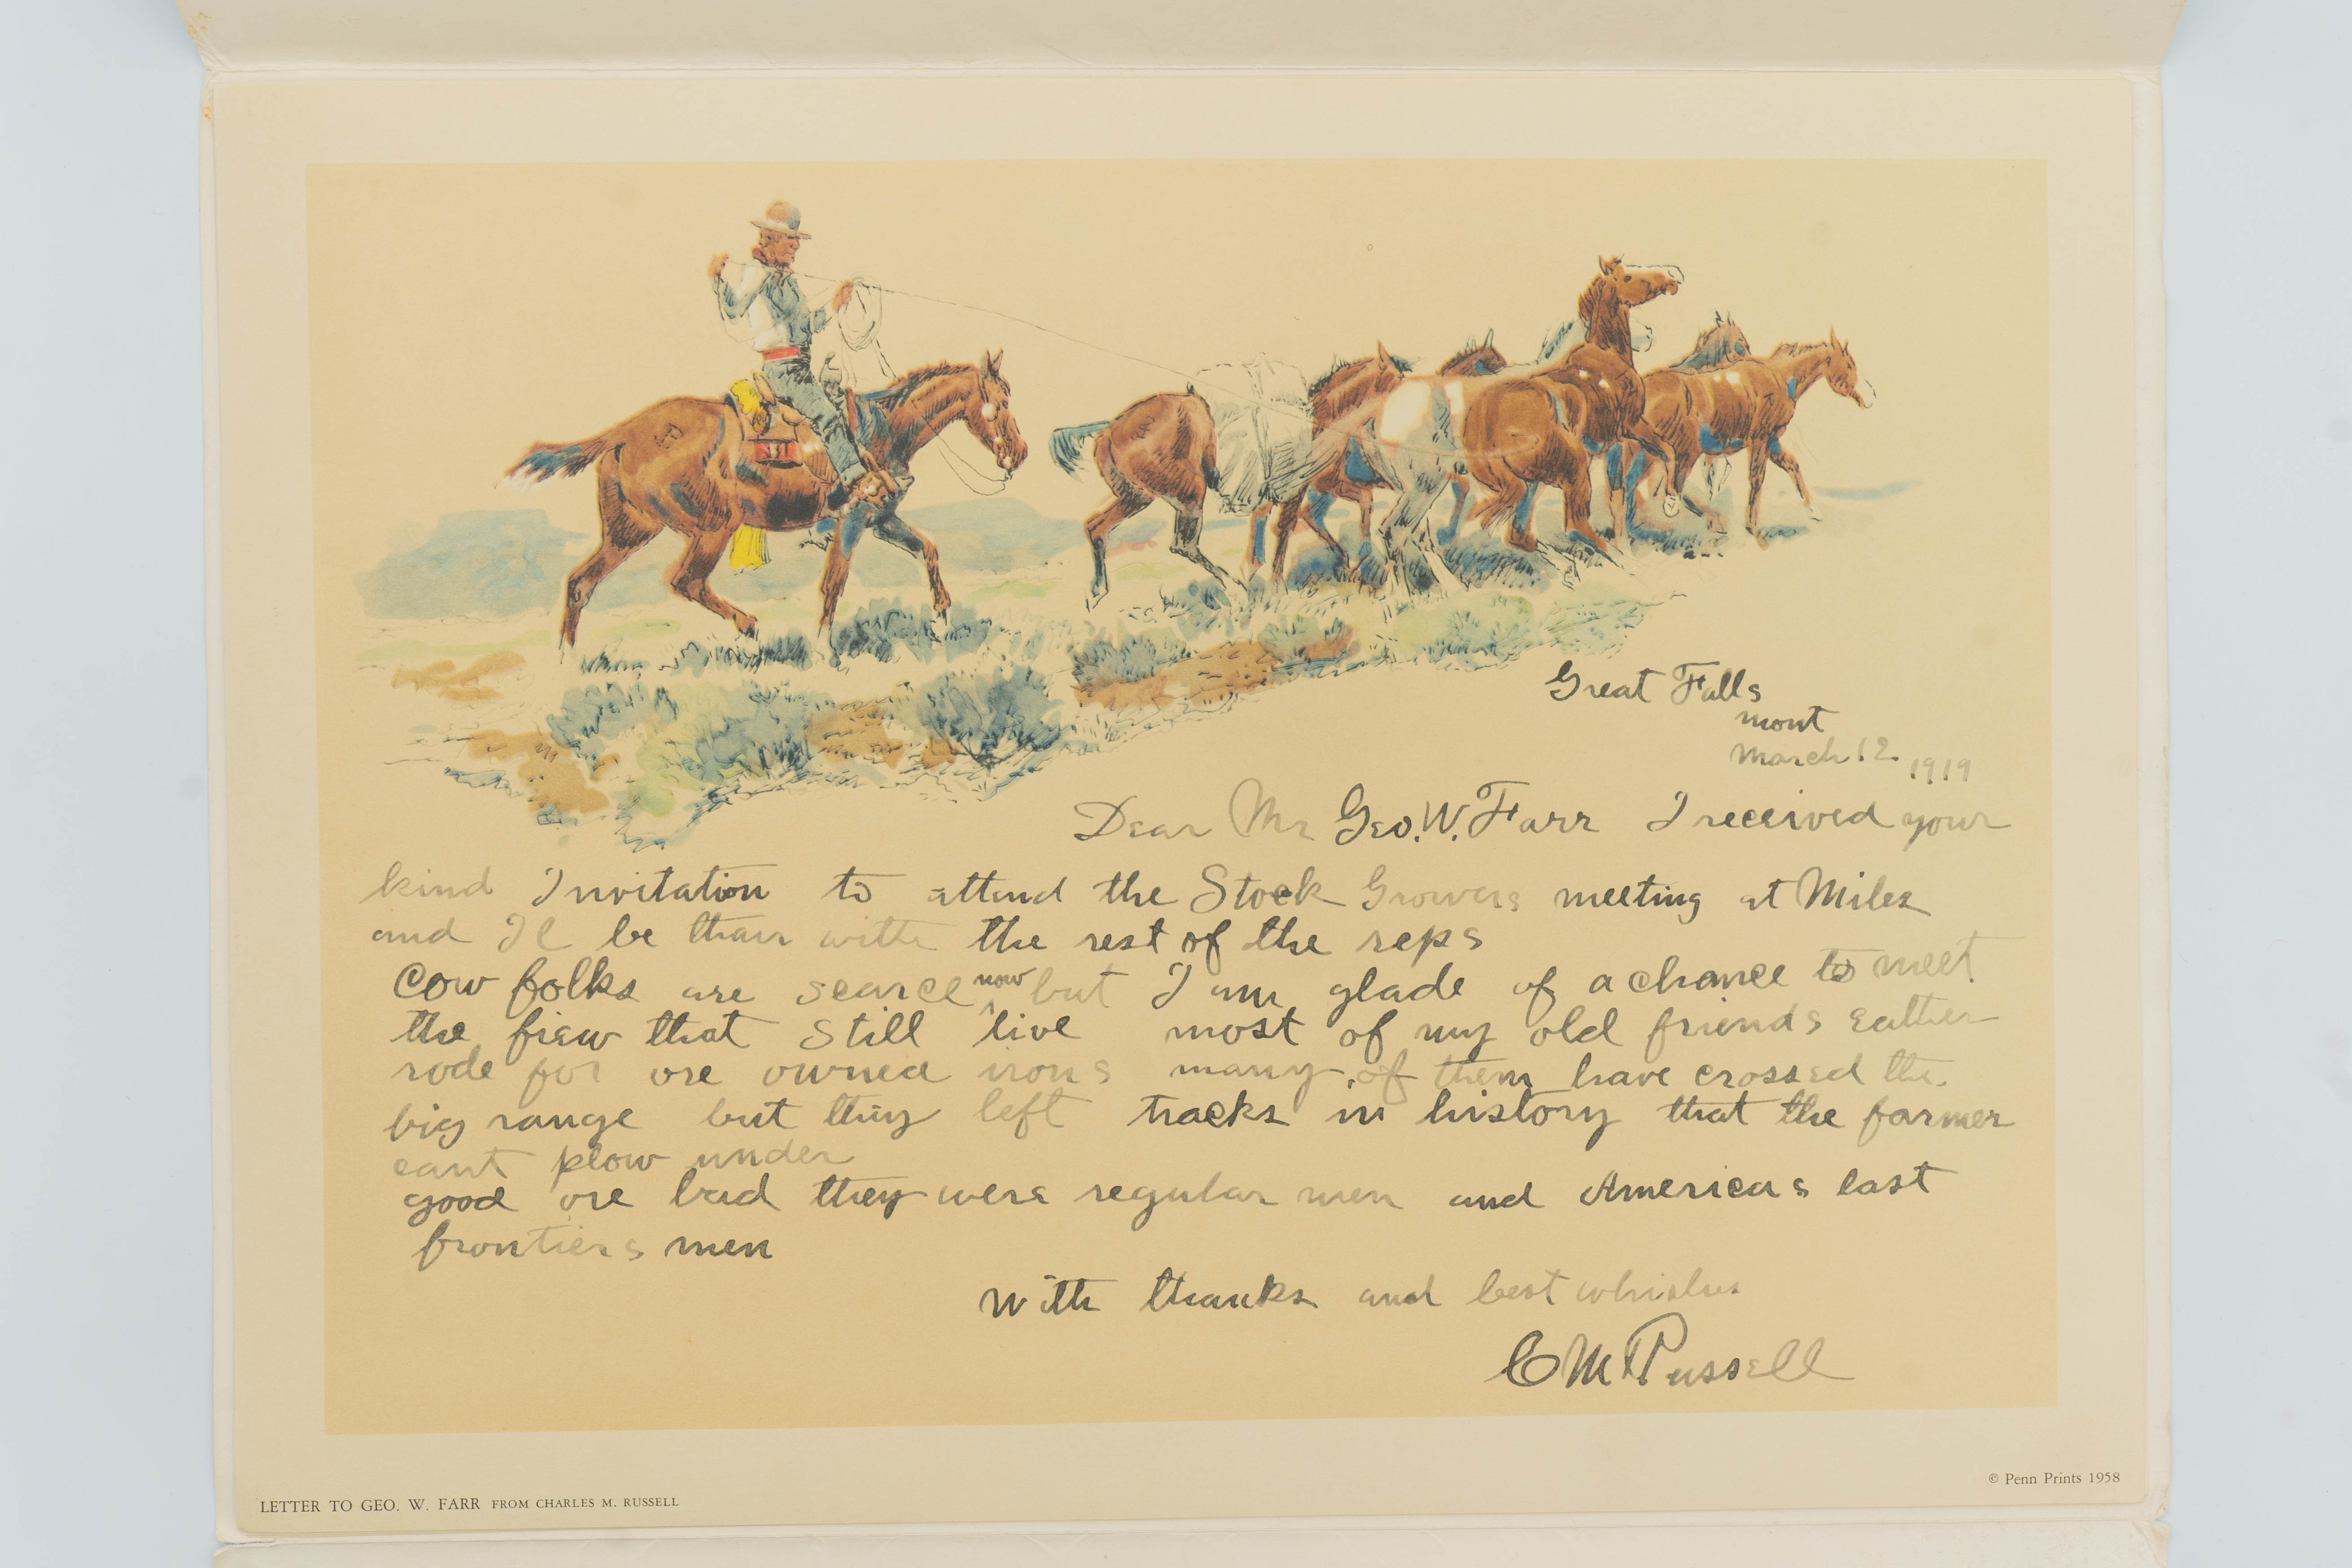 Great Falls
mont
March 12 1919
Dear Mr Geo. W. Farr I received your
kind Invitation to attend the Stock Growers meeting at Miles
and Il be thair with the rest of the reps
Cow folks are scarce now but I am glade of a chance to meet
the fiew that still live most of my old friends eather
rode for ore owned irons many of them have crossed the
big range but thiy left tracks in history that the farmer
cant plow under
good ore bad they were regular men and Americas last
frontiers men
With thanks and best whishes
C M Russell
LETTER TO GEO. W. FARR FROM CHARLES M. RUSSELL
© Penn Prints 1958